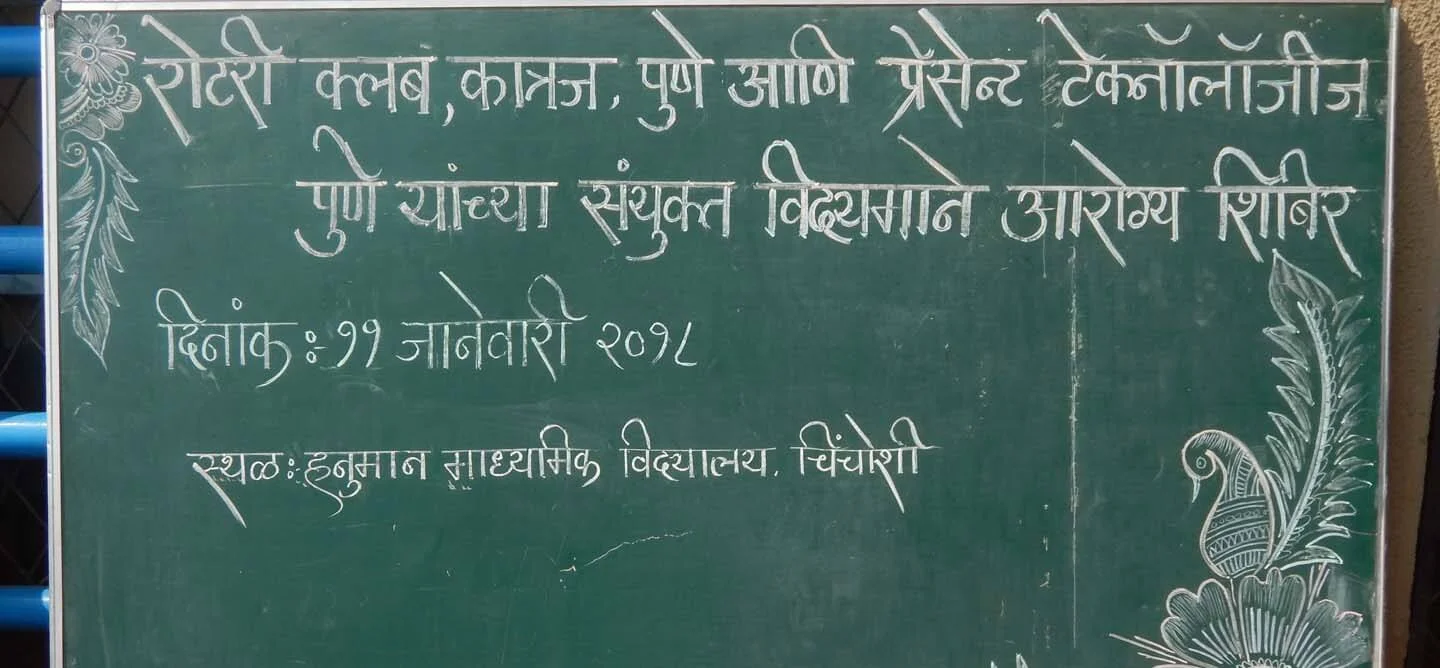 रोटरी क्लब, कात्रज, पुणे आणि प्रेसेन्ट टेक्नॉलॉजीज
पुणे यांच्या संयुक्त विद्यमाने आरोग्य शिबिर
दिनांक :- ११ जानेवारी २०१८
स्थळ :- हनुमान माध्यमिक विद्यालय, चिंचोशी